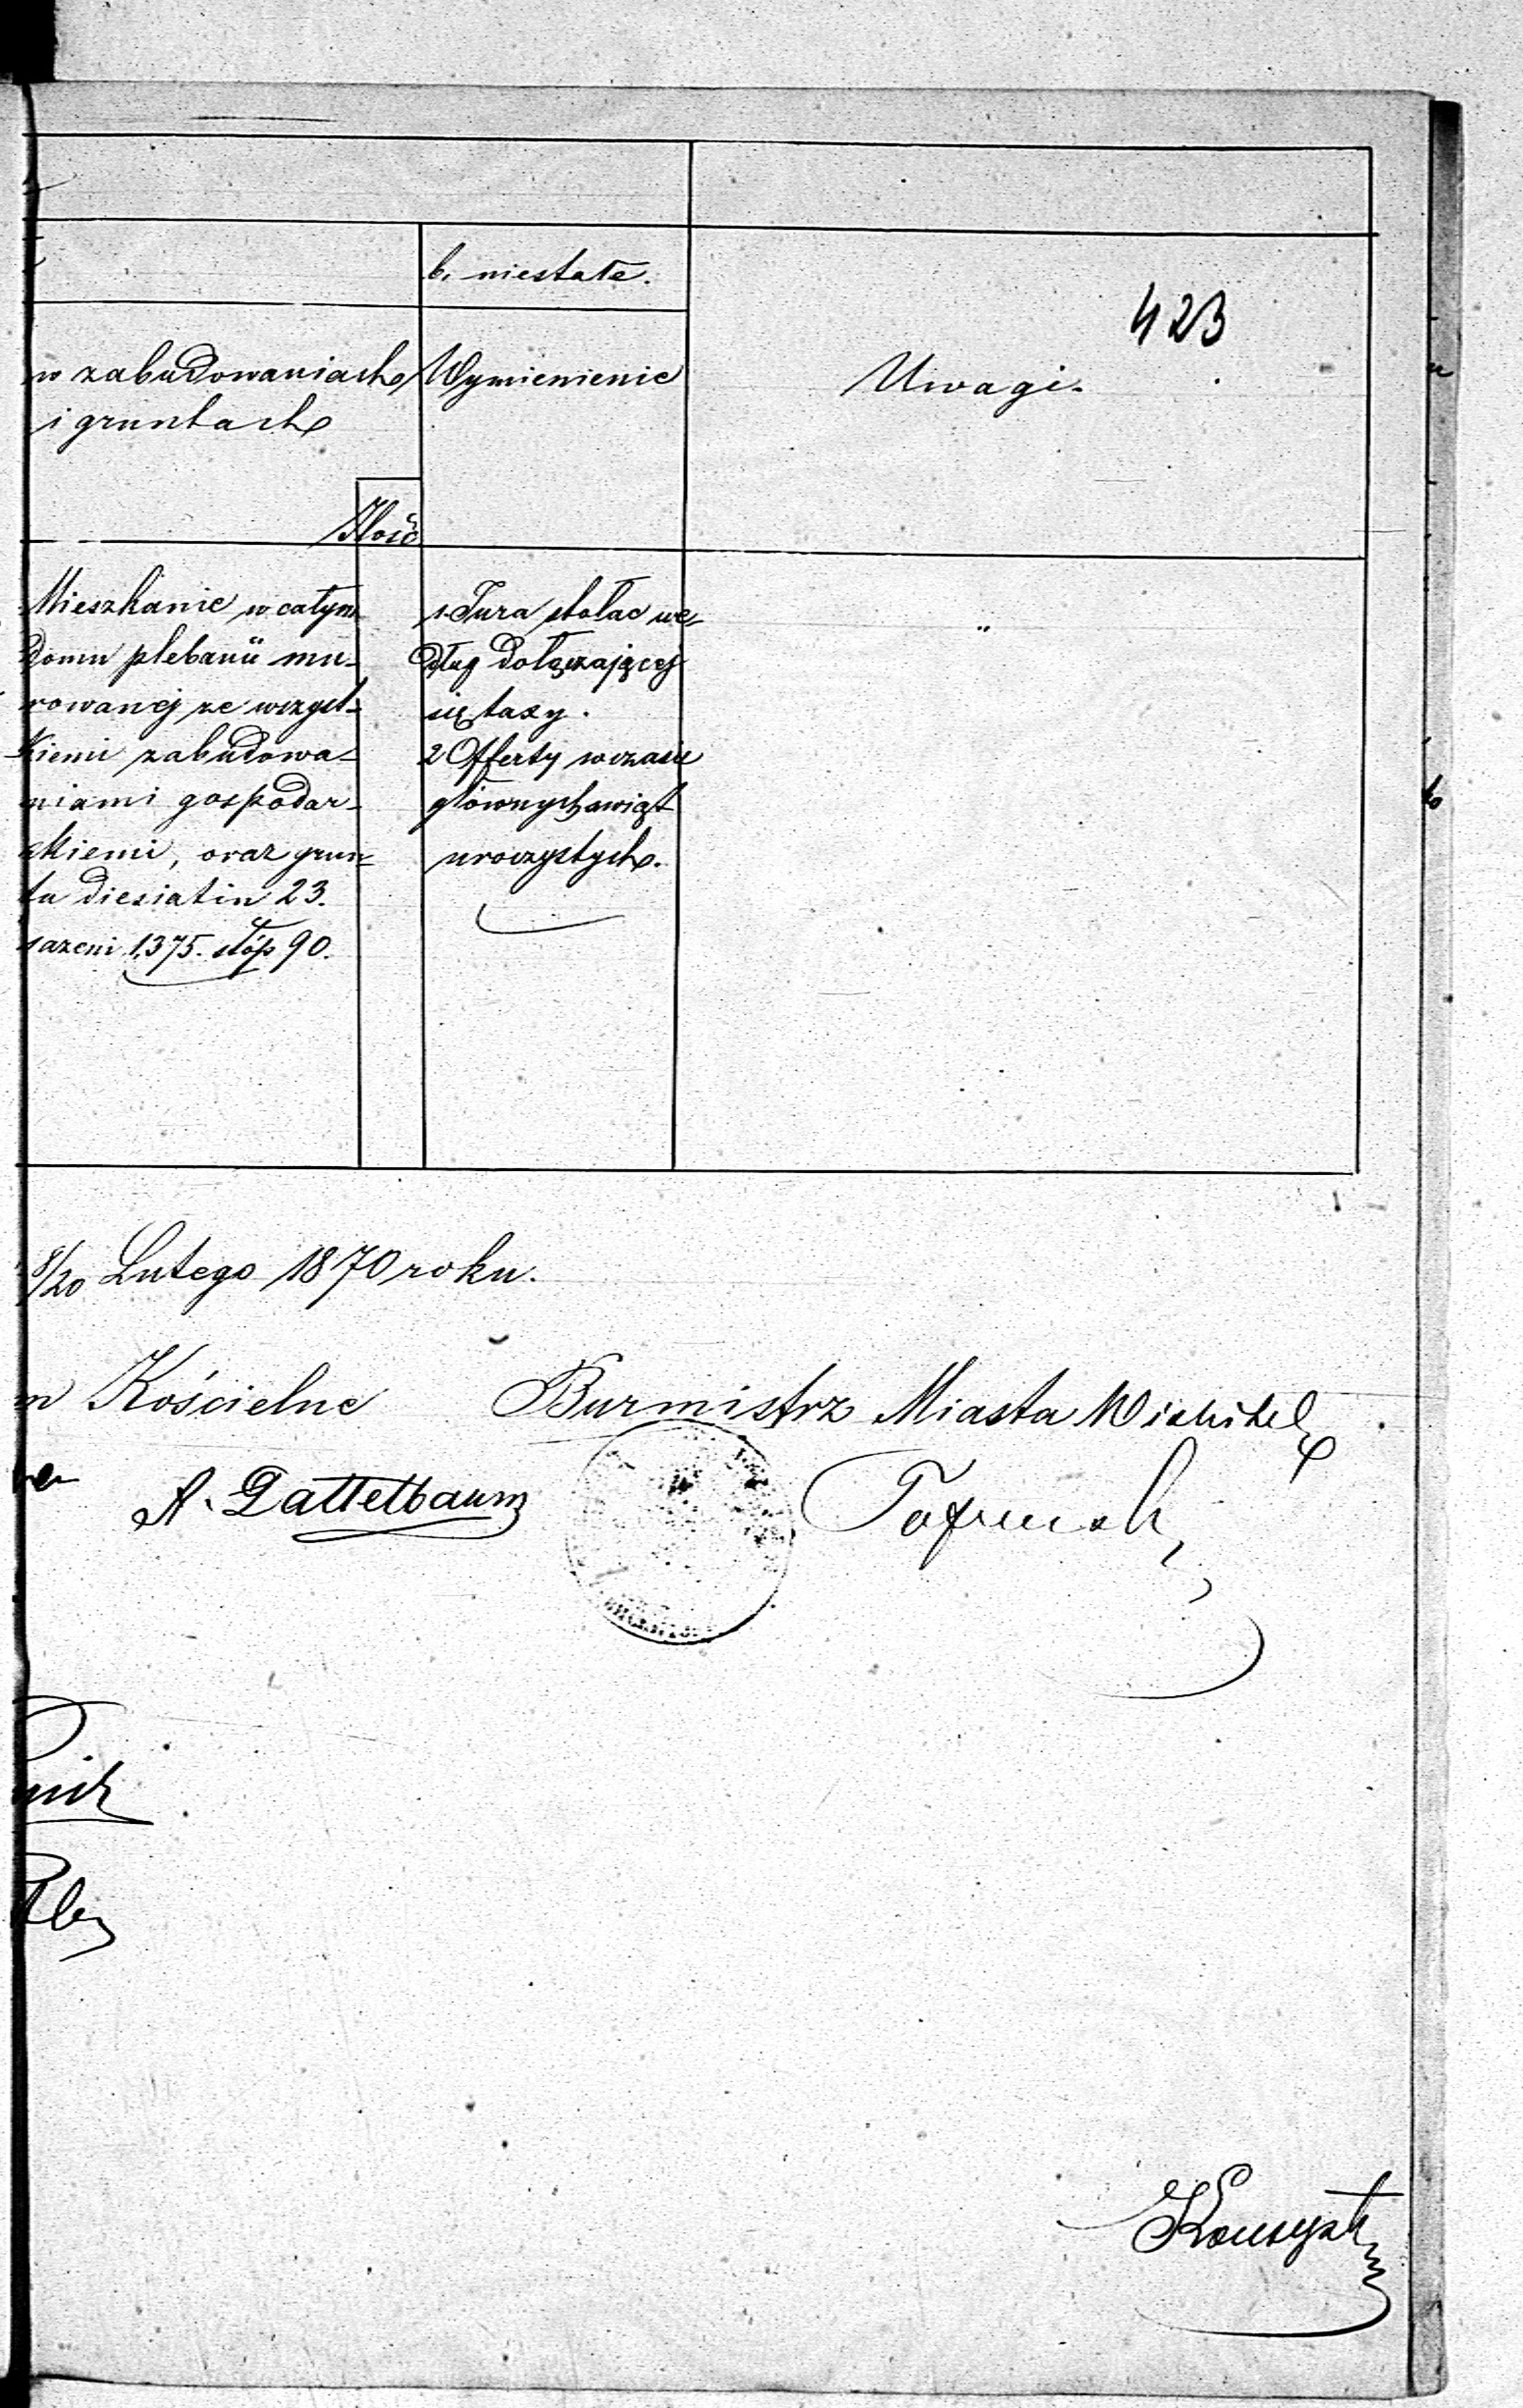 b. niestałe.
423
w zabudowaniach
i gruntach
Wymienienie
Uwagi.
Ilość
Mieszkanie w całym
domu plebanii mu-
rowanej ze wszyst-
kiemi zabudowa-
niami gospodar-
skiemi, oraz grun-
tu diesiatin 23.
sazeni 1,375. stóp 90.
1. Jura stolae we-
dług dołączającej
się taxy.
2 Offerty w czasie
głównych świąt
uroczystych.
"
8/20 Lutego 1870 roku.
Kościelne
Burmistrz Miasta
A. Dattelbaum